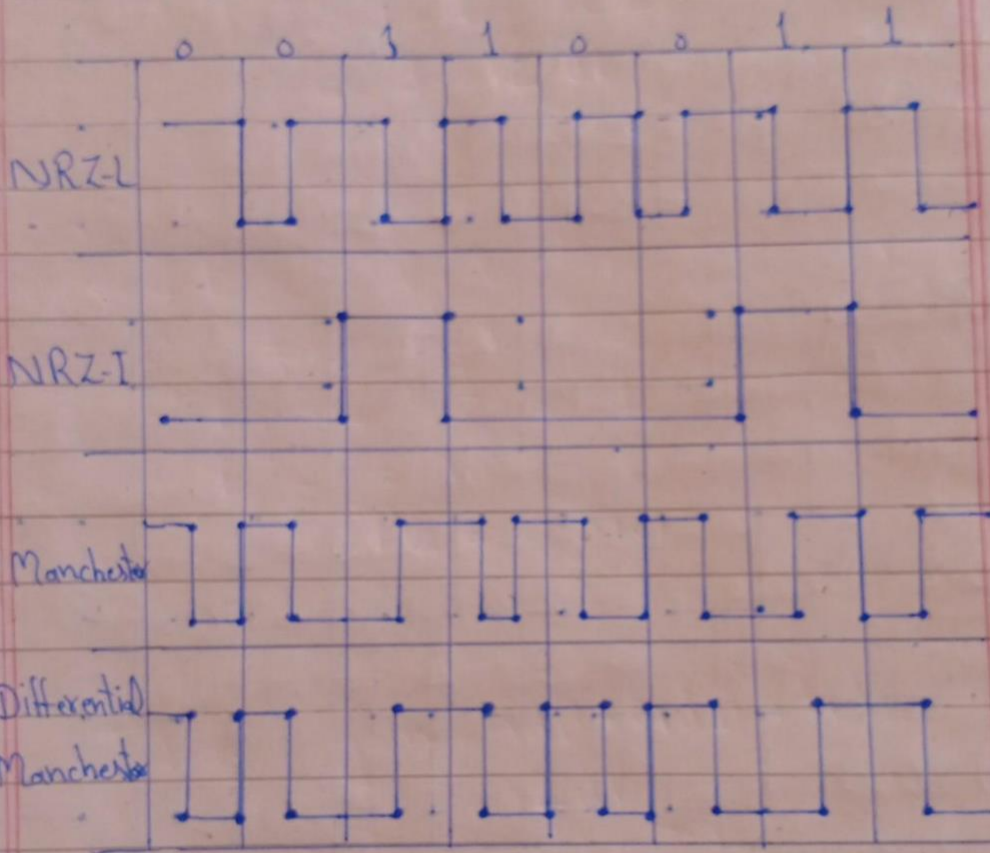 0 0 1 1 0 0 1 1
NRZ-L
NRZ-I
Manchester
Differential
Manchester